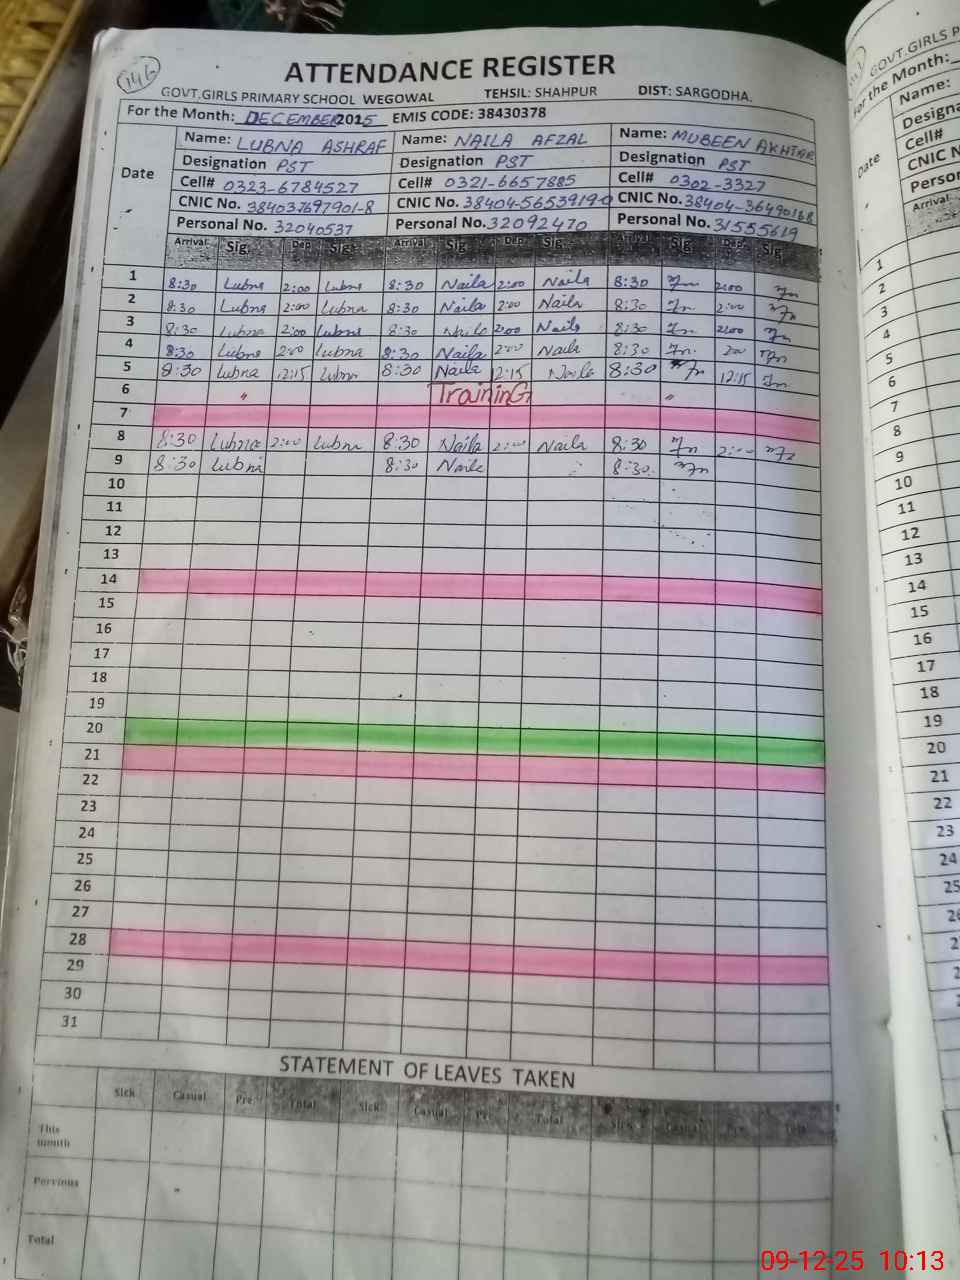 146
ATTENDANCE REGISTER
GOVT.GIRLS PRIMARY SCHOOL WEGOWAL TEHSIL: SHAHPUR DIST: SARGODHA.
For the Month: DECEMBER 2015 EMIS CODE: 38430378
Date
Name: LUBNA ASHRAF Name: NAILA AFZAL Name: MUBEEN AKHTAR
Designation PST Designation PST Designation PST
Cell# 0323-6784527 Cell# 0321-6657885 Cell# 0302-3327
CNIC No. 384037697901-8 CNIC No. 38404-5653919-0 CNIC No. 38404-36490168
Personal No. 32040537 Personal No. 32092470 Personal No. 31555619
Arrival Sig. Dep Sig. Arrival Sig. Dep Sig. Arrival Sig. Dep Sig.
1 8:30 Lubna 2:00 Lubna 8:30 Naila 2:00 Naila 8:30 2:00
2 8:30 Lubna 2:00 Lubna 8:30 Naila 2:00 Naila 8:30 2:00
3 8:30 Lubna 2:00 Lubna 8:30 Naila 2:00 Naila 8:30 2:00
4 8:30 Lubna 2:00 Lubna 8:30 Naila 2:00 Naila 8:30 200
5 8:30 Lubna 12:15 Lubna 8:30 Naila 12:15 Naila 8:30 12:15
6 " TraininG "
7
8 8:30 Lubna 2:00 Lubna 8:30 Naila 2:00 Naila 8:30 2:00
9 8:30 Lubna 8:30 Naila 8:30
10
11
12
13
14
15
16
17
18
19
20
21
22
23
24
25
26
27
28
29
30
31
STATEMENT OF LEAVES TAKEN
Sick Casual Pre Total Sick Casual Pre Total Sick Casual Pre Total
This month
Pervious
Total
GOVT.GIRLS P
For the Month:
Name:
Designa
Cell#
CNIC N
Person
Date
Arrival
1
2
3
4
5
6
7
8
9
10
11
12
13
14
15
16
17
18
19
20
21
22
23
24
25
09-12-25 10:13